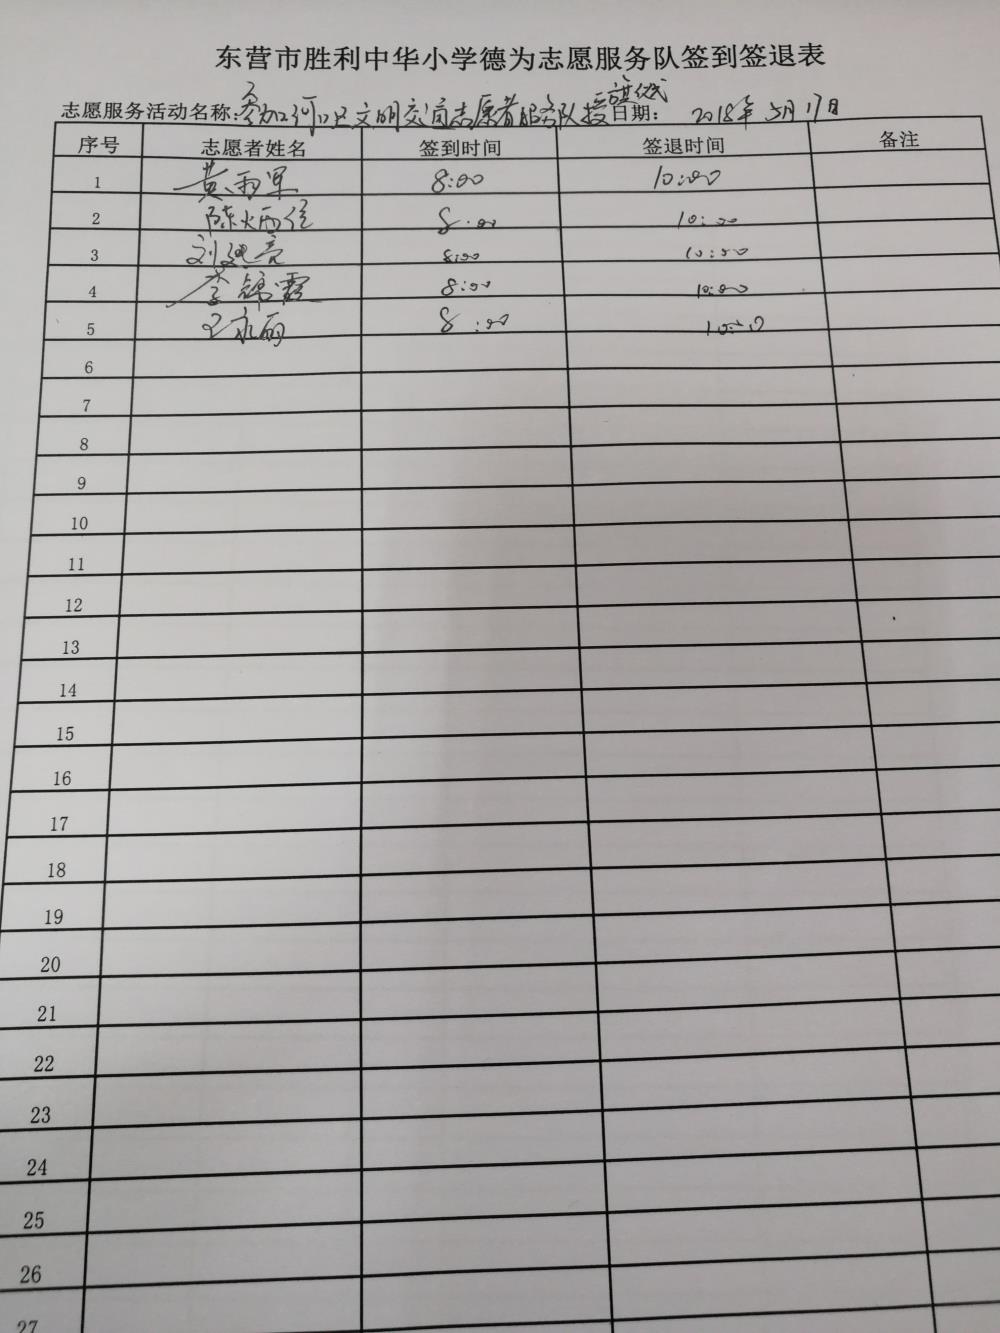 东营市胜利中华小学德为志愿服务队签到签退表
志愿服务活动名称:参加河口区文明交通志愿者服务队授旗仪式 日期: 2018年5月17日
序号 志愿者姓名 签到时间 签退时间 备注
1 黄雨军 8:00 10:00
2 8:00 10:00
3 刘建亮 8:00 10:00
4 李锦霞 8:00 10:00
5 王永丽 8:00 10:00
6
7
8
9
10
11
12
13
14
15
16
17
18
19
20
21
22
23
24
25
26
27